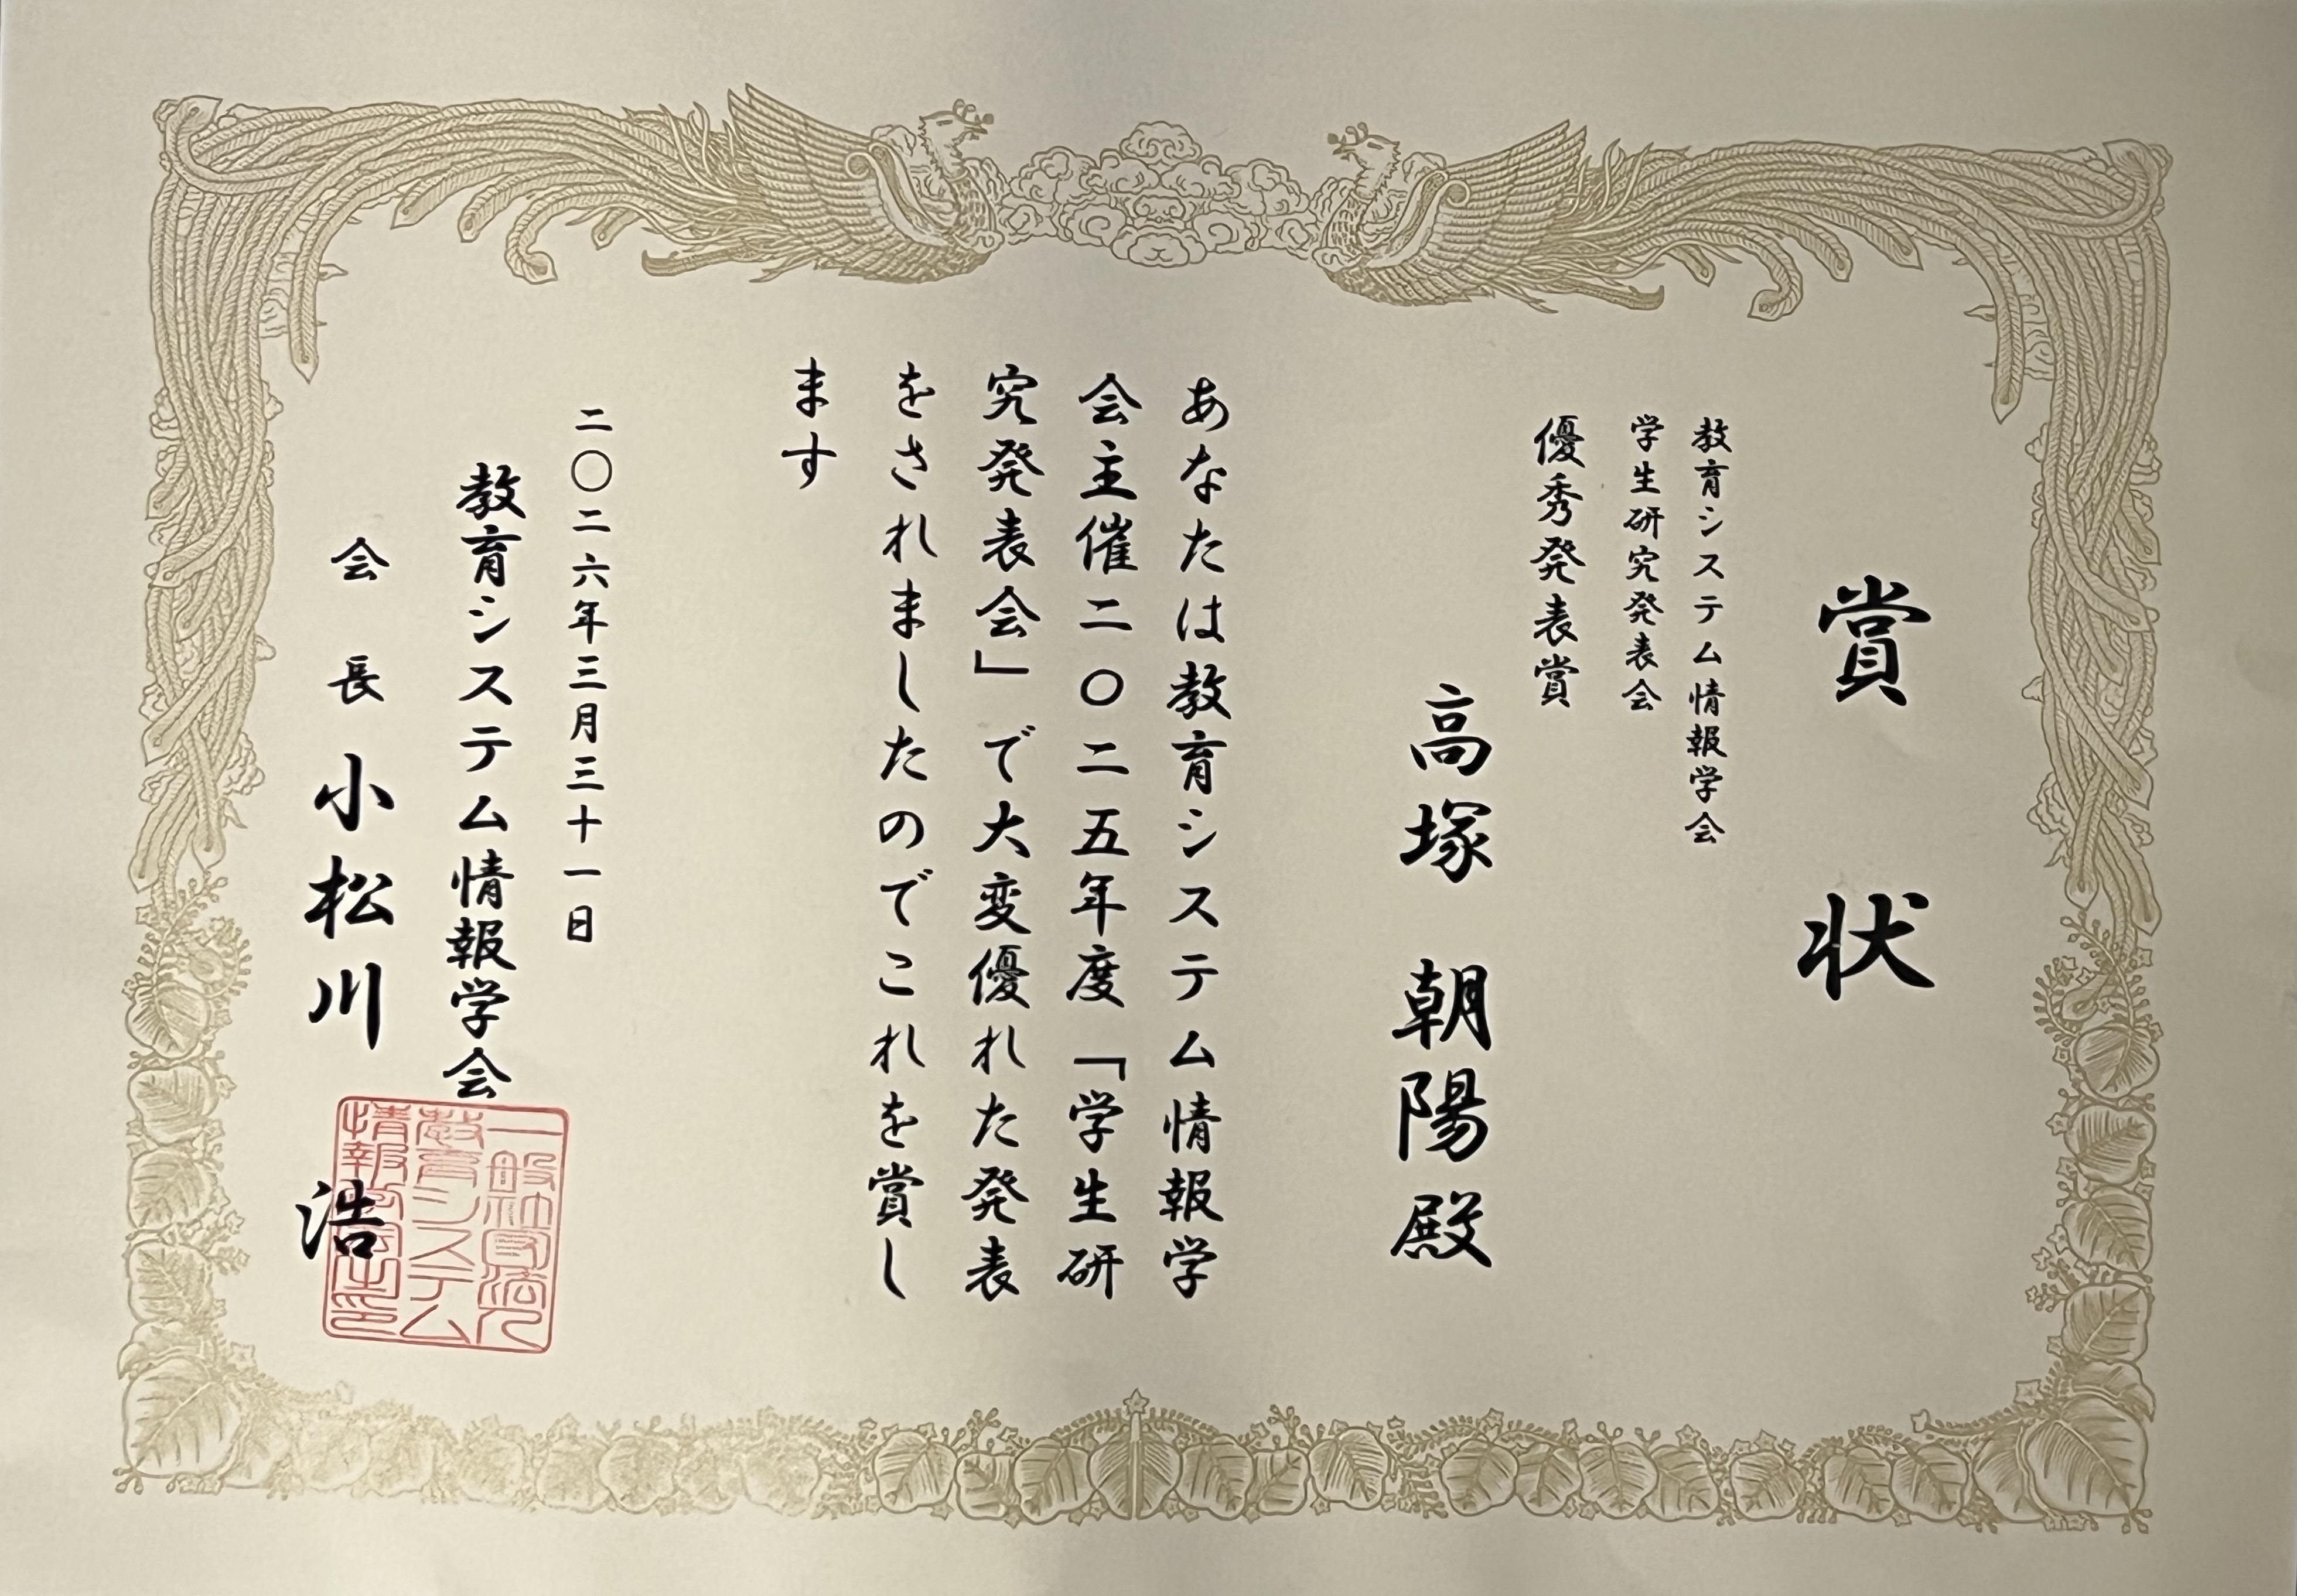 賞状
教育システム情報学会
学生研究発表会
優秀発表賞
高塚 朝陽 殿
あなたは教育システム情報学
会主催二〇二五年度「学生研
究発表会」で大変優れた発表
をされましたのでこれを賞し
ます
二〇二六年三月三十一日
教育システム情報学会
会長 小松川 浩
一般社団法人
教育システム
情報学会之印